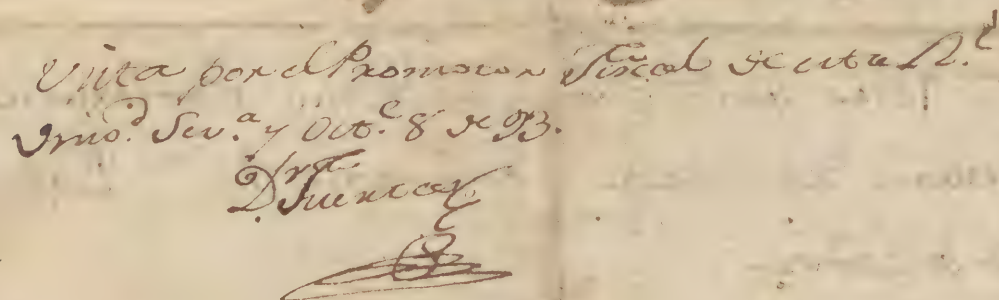 Vista por el Promotor Fiscal de esta R.l
Univ.d Sev.a y Oct.e 8 de 93.
D.r Fuentes